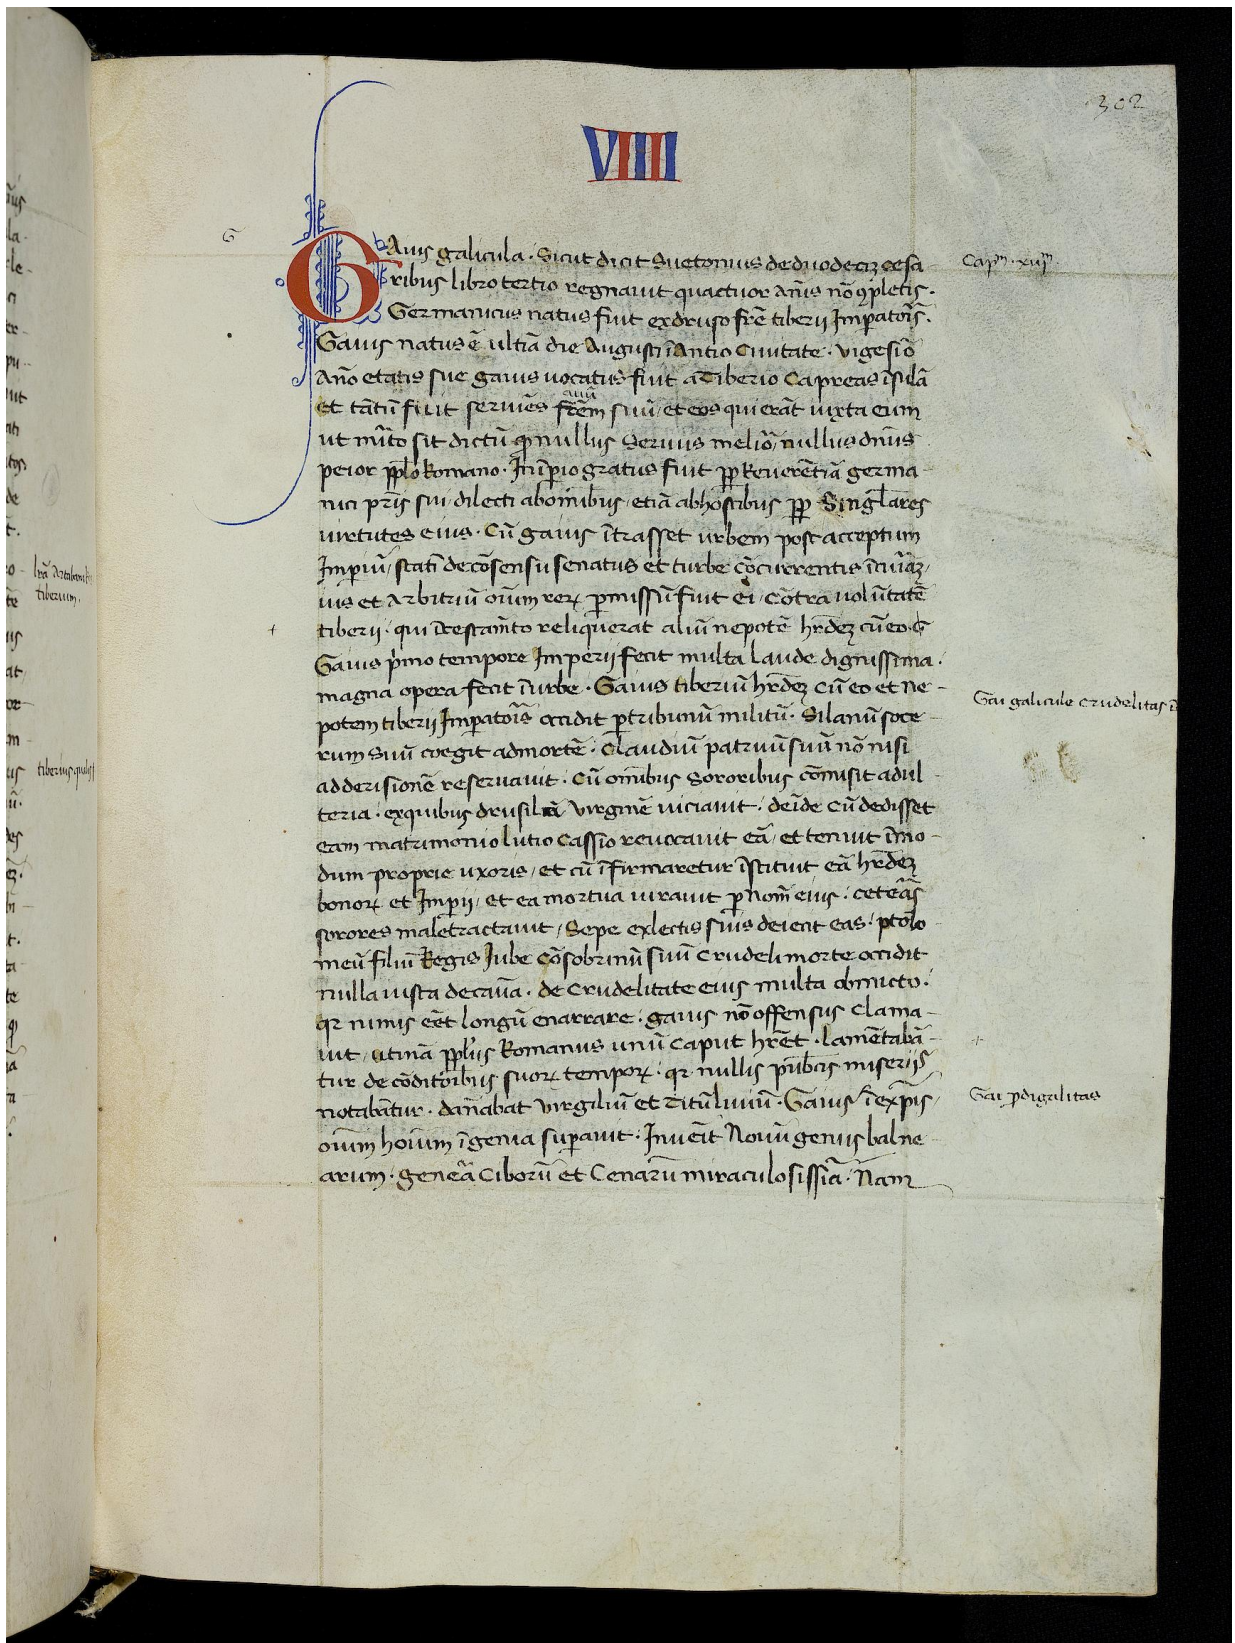 302
VIIII
G
GAius galicula · Sicut dicit Suetonius de duodecꝫ cesa
ribus libro tertio regnauit quactuor Añis nō ꝯpletis ·
Germanicus natus fuit ex druso frē tiberii Impatoris̄ ·
Gaius natus ē ultiā die Augusti ī Antio Ciuitate · vigesīo
Año etatis sue gaius uocatus fuit a Tiberio Capreas īsulā
et tātū fuit seruiēs frēm suū / et eos qui erāt iuxta eum
auū
ut mīto sit dictū ꝙ nullus Seruus meliōr / nullus dñus
peior pplo Romano · In īpio gratus fuit pp Reuerētiā germa-
nici pr̄is sui dilecti ab oīnibus / etiā ab hostibus pp Singlares
uirtutes eius · Cū gaius ītrasset urbem post acceptum
Imperiū / statī de cōsensu senatus et turbe cōcurrentis ī ciuitāꝫ /
ius et Arbitriū oīum reꝝ pmissū fuit ei / cōtra uolūtatē
tiberii · qui ī testam̄to reliquerat aliū nepotē hr̄dēꝫ cū eo · G
Gaius pīmo tempore Imperii fecit multa laude dignissima ·
magna opera fecit ī urbe · Gaius tiberiū hr̄dēꝫ cū eo et Ne-
potem tiberii Impatoris̄ occidit p tribunū militū · Silanū soce-
rum Suū coegit ad mortē · Claudiū patruū suū nō nisi
ad derisionē reseruauit · Cū oīnibus Sororibus cōmisit adul-
teria · ex quibus drusillā virginē uiciauit · deīde Cū dedisset
eam matrimonio lutio Cassio reuocauit eā / et tenuit ī mo-
dum proprie uxoris / et cū īfirmaretur īstituit eā hr̄dēꝫ
bonoꝝ et Impii / et ea mortua iurauit p nom̄ eius · ceterās
sorores male tractauit / Sepe exlectis suis deiecit eas · ptolo
meū filiū Regis Iube Cōsobrinū suū Crudeli morte occidit
nulla iusta de caūa · de Crudelitate eius multa obmicto ·
qr nimis eēt longū enarrare · gaius nō offensus Clama-
uit / utinā pplus Romanus unū Caput hr̄et · lamētabā-
tur de cōditōribus suoꝝ tempoꝝ · qr nullis publicis miseriis
notabātur · dañabat Virgiliū et Titū liuiū · Gaius ī expīs /
oīum hoīum īgenia supauit · Inueīt Nouū genus balne
arum · generā Ciborū et Cenarū miraculosissiā · Nam
Capm · xiiijm ·
Gai galicule crudelitas
Gai pdigalitas
tiberium ·